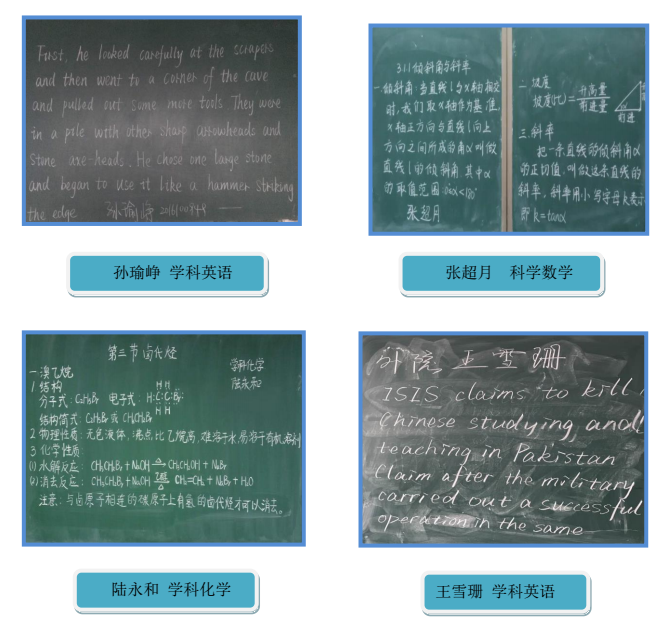 First, he looked carefully at the scrapers
and then went to a corner of the cave
and pulled out some more tools. They were
in a pile with other sharp arrowheads and
stone axe-heads. He chose one large stone
and began to use it like a hammer striking
the edge 孙瑜峥
孙瑜峥 学科英语
3.1.1倾斜角与斜率
一.倾斜角:当直线l与x轴相交
时,我们取x轴作为基准,
x轴正方向与直线l向上
方向之间所成的角α叫做
直线l的倾斜角 其中α
的取值范围:0≤α<180°
张超月
二.坡度
坡度(比)=升高量/前进量
前进
三.斜率
把一条直线的倾斜角α
的正切值,叫做这条直线的
斜率,斜率用小写字母k表示
即 k=tanα
张超月 科学数学
第三节 卤代烃
学科化学
陆永和
一.溴乙烷
1 结构
分子式:C₂H₅Br 电子式:
H H
H:C:C:Br:
H H
结构简式:C₂H₅Br 或 CH₃CH₂Br
2 物理性质:无色液体,沸点比乙烷高,难溶于水,易溶于有机
3 化学性质
(1) 水解反应: CH₃CH₂Br + NaOH →△ CH₃CH₂OH + NaBr
(2) 消去反应: CH₃CH₂Br + NaOH →乙醇△ CH₂=CH₂ + NaBr + H₂O
注意:与卤原子相连的碳原子上有氢的卤代烃才可以消去。
陆永和 学科化学
外院 王雪珊
ISIS claims to kill
Chinese studying and
teaching in Pakistan
Claim after the military
carried out a successful
operation in the same
王雪珊 学科英语